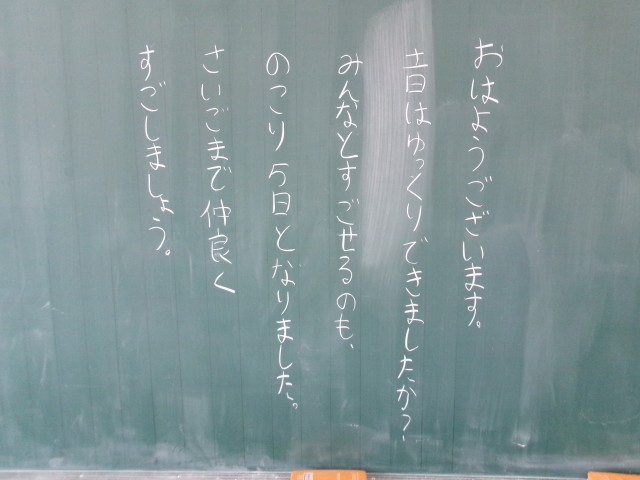 おはようございます。
土日はゆっくりできましたか?
みんなとすごせるのも、
のこり5日となりました。
さいごまで仲良く
すごしましょう。